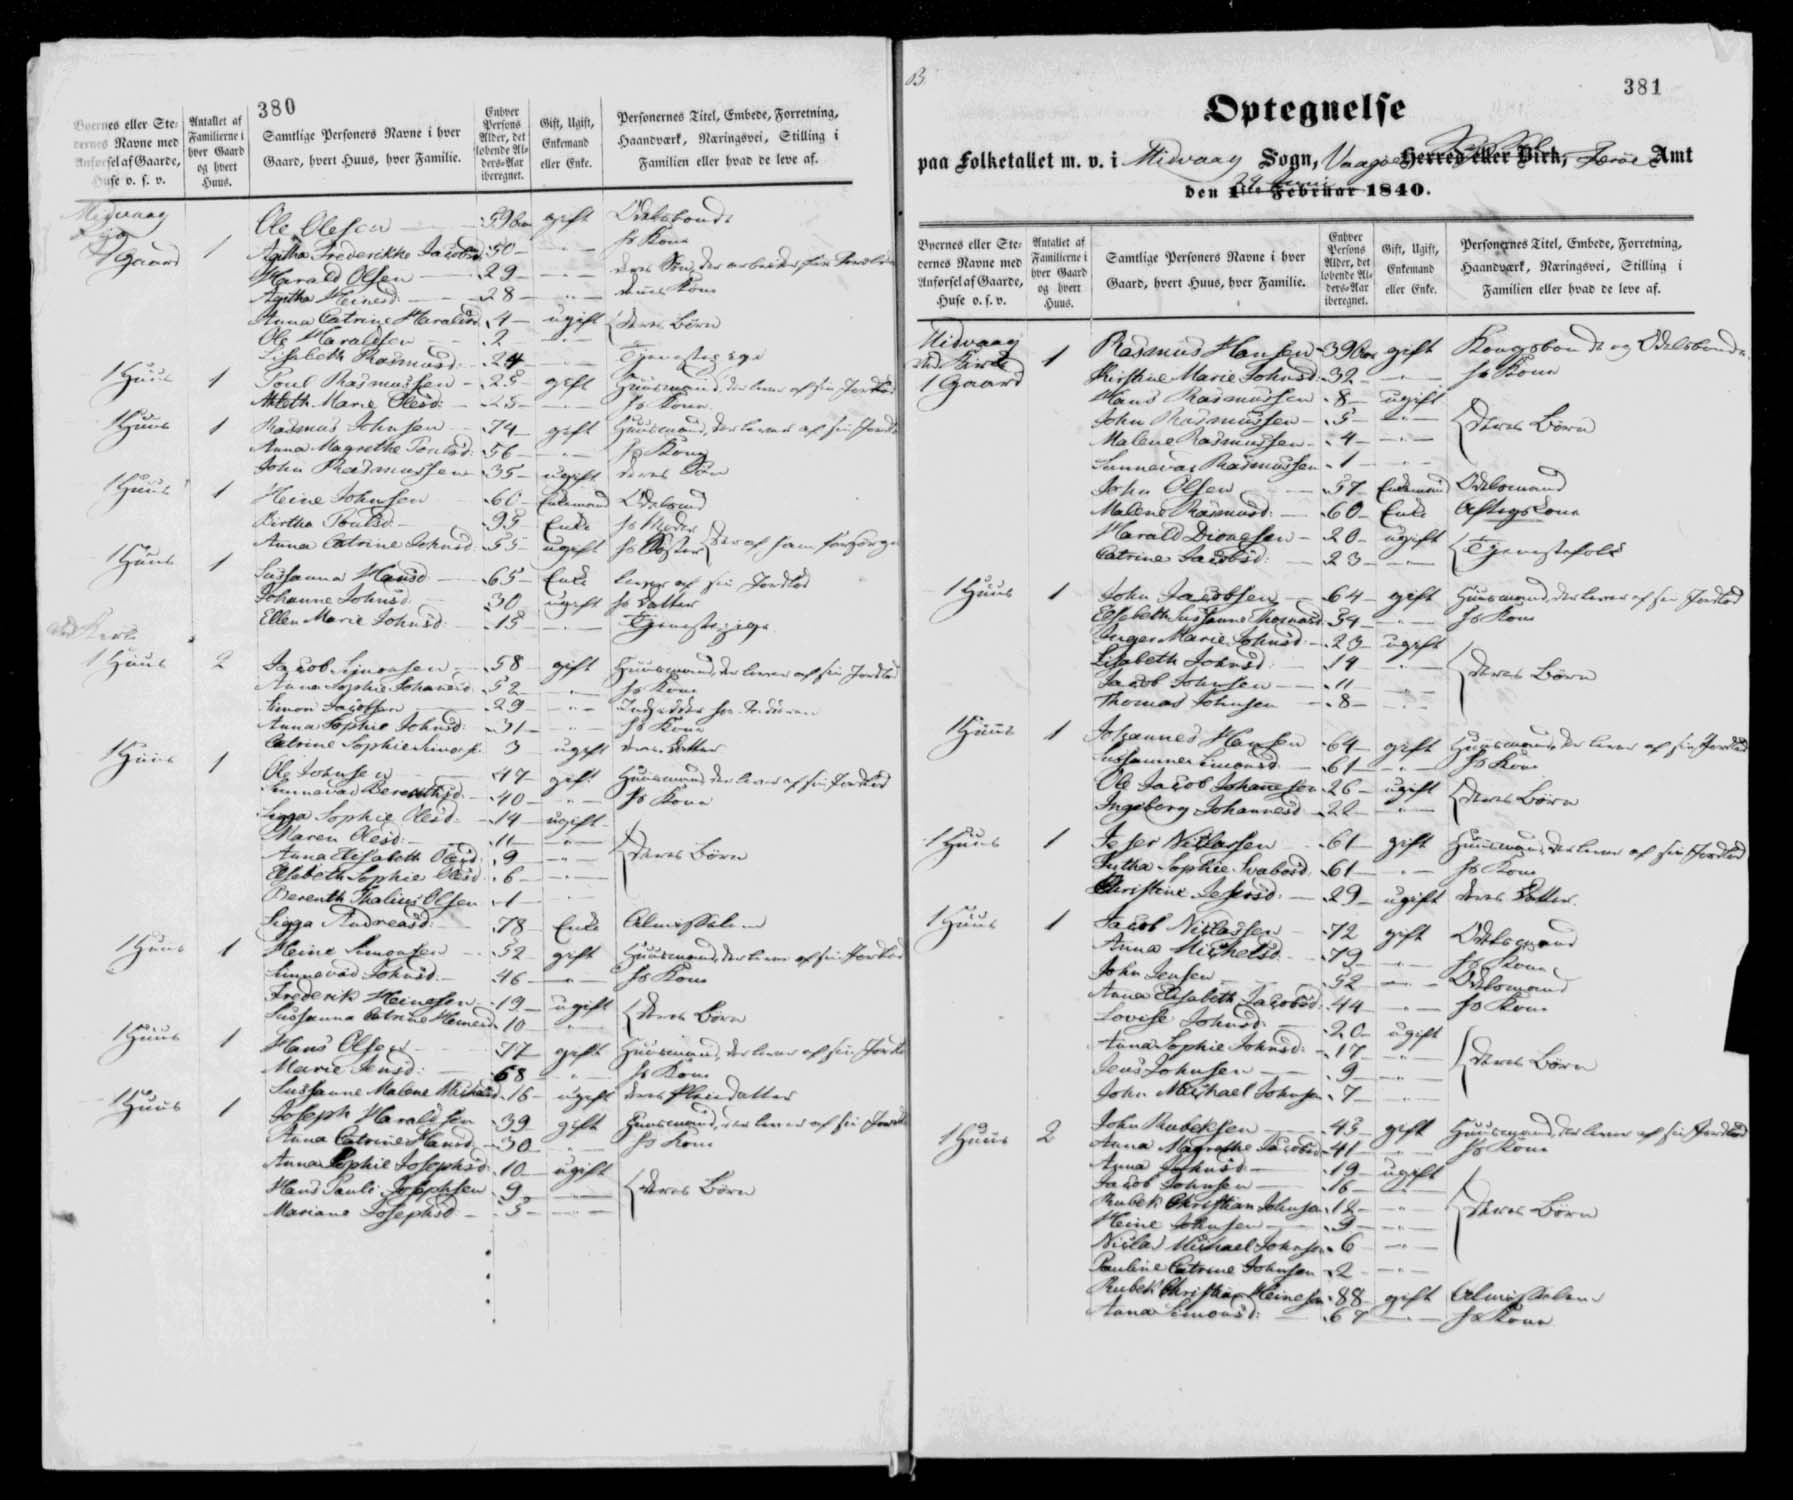 380
Byernes eller Ste-
dernes Navne med
Anførsel af Gaarde,
Huse o. s. v.
Antallet af
Familierne i
hver Gaard
og hvert
Huus.
Samtlige Personers Navne i hver
Gaard, hvert Huus, hver Familie.
Enhver
Persons
Alder, det
løbende Al-
ders-Aar
iberegnet.
Gift, Ugift,
Enkemand
eller Enke.
Personernes Titel, Embede, Forretning,
Haandværk, Næringsvei, Stilling i
Familien eller hvad de leve af.
Midvaag
1 Gaard 1 Ole Olesen 59 Aar gift Odelsbonde
Agitha Frederikke Jacobsd. 50 " hs Kone
Harald Olsen 29 " deres Søn, der
Agitha Heinesd. 28 " dennes Kone
Anna Catrine Haraldsd. 4 ugift deres Børn
Ole Haraldsen 2 "
Lisabeth Rasmusd. 24 " Tjenestepige
1 Huus 1 Poul Rasmussen 25 gift Huusmand, der lever af sin Jordlod
Marie Olesd. 25 " hs Kone
1 Huus 1 Rasmus Johnsen 74 gift Huusmand, der lever af sin Jordlod
Anna Magrethe Poulsd. 56 " hs Kone
John Rasmussen 35 ugift deres Søn
1 Huus 1 Heine Johnsen 60 Enkemand
Birtha Poulsd. 95 Enke hs Moder
Anna Catrine Johnsd. 55 ugift hs Søster
1 Huus 1 Sussanna Hansd. 65 Enke lever af sin Jordlod
Johanne Johnsd. 30 ugift hs Datter
Ellen Marie Johnsd. 15 " Tjenestepige
1 Huus 2 Jacob Simonsen 58 gift Huusmand, der lever af sin Jordlod
Anna Sophie Johansd. 52 " hs Kone
Simon Jacobsen 29 "
Anna Sophie Johnsd. 31 " hs Kone
Catrine Sophie 3 ugift deres Datter
1 Huus 1 Ole Johnsen 47 gift Huusmand, der lever af sin Jordlod
Sunnevad 40 " hs Kone
Sigga Sophie Olesd. 14 ugift
Maren Olesd. 11 "
Anna Elisabeth Olesd. 9 " deres Børn
Elsebeth Sophie Olesd. 6 "
Berenth Thalius Olsen 1 "
Sigga Andreasd. 78 Enke Almisselem
1 Huus 1 Heine Simonsen 52 gift Huusmand, der lever af sin Jordlod
Sunnevad Johnsd. 46 " hs Kone
Frederik Heinesen 19 ugift deres Børn
Sussanna Catrine Heinesd. 10 "
1 Huus 1 Hans Olsen 77 gift Huusmand, der lever af sin Jordlod
Marie Jensd. 68 " hs Kone
Sussanne Malene 16 ugift deres Pleiedatter
1 Huus 1 Joseph Haraldsen 39 gift Huusmand, der lever af sin Jordlod
Anna Catrine Hansd. 30 " hs Kone
Anna Sophie Josephsd. 10 ugift
Hans Pauli Josephsen 9 " deres Børn
Mariane Josephsd. 5 "
B
381
Optegnelse
paa Folketallet m. v. i Midvaag Sogn, Vaagøe Herred eller Birk, Færøe Amt
den 1ste Februar 1840.
Byernes eller Ste-
dernes Navne med
Anførsel af Gaarde,
Huse o. s. v.
Antallet af
Familierne i
hver Gaard
og hvert
Huus.
Samtlige Personers Navne i hver
Gaard, hvert Huus, hver Familie.
Enhver
Persons
Alder, det
løbende Al-
ders-Aar
iberegnet.
Gift, Ugift,
Enkemand
eller Enke.
Personernes Titel, Embede, Forretning,
Haandværk, Næringsvei, Stilling i
Familien eller hvad de leve af.
Midvaag
1 Gaard 1 Rasmus Hansen 39 Aar gift Kongsbonde og Odelsbonde
Kirstine Marie Johnsd. 32 " hs Kone
Hans Rasmussen 8 ugift
John Rasmussen 5 " deres Børn
Malene Rasmussen 4 "
Sunneva Rasmussen 1 "
John Olsen 57 Enkemand Odelsmand
Malene Rasmusd. 60 Enke Aftægtskone
Harald Dionesen 20 ugift Tjenestefolk
Catrine Jacobsd. 23 "
1 Huus 1 John Jacobsen 64 gift Huusmand, der lever af sin Jordlod
Elsebeth Sussanne Thomasd. 54 " hs Kone
Inger Marie Johnsd. 23 ugift
Lisabeth Johnsd. 14 " deres Børn
Jacob Johnsen 11 "
Thomas Johnsen 8 "
1 Huus 1 Johannes Hansen 64 gift Huusmand, der lever af sin Jordlod
Sussanne Simonsd. 61 " hs Kone
Ole Jacob Johannesen 26 ugift deres Børn
Ingeborg Johannesd. 22 "
1 Huus 1 Jesper Niclassen 61 gift Huusmand, der lever af sin Jordlod
Sophie 61 " hs Kone
Christine Jespersd. 29 ugift deres Datter
1 Huus 1 Jacob Niclassen 72 gift Odelsmand
Anna Michelsd. 79 " hs Kone
John Jensen 52 " Odelsmand
Anna Elisabeth Jacobsd. 44 " hs Kone
Lovise Johnsd. 20 ugift
Anna Sophie Johnsd. 17 "
Jens Johnsen 9 " deres Børn
John Michael Johnsen 7 "
1 Huus 2 John Rubeksen 43 gift Huusmand, der lever af sin Jordlod
Anna Magrethe Jacobsd. 41 " hs Kone
Anna Johnsd. 19 ugift
Jacob Johnsen 16 "
Rubek Christian Johnsen 12 " deres Børn
Heine Johnsen 9 "
Niclas Michael Johnsen 6 "
Pauline Catrine Johnsen 2 "
Rubek Christian Heinesen 88 gift Almisselem
Anna Simonsd. 67 " hs Kone